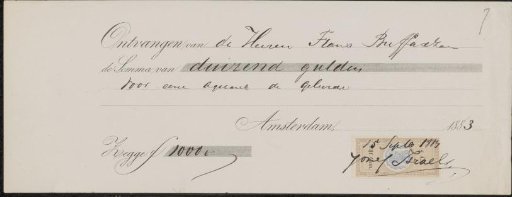 Ontvangen van de Heeren Frans Buffa & Zn
de Somma van duizend gulden
voor eene aquarel de
Amsterdam, 1883
15 Septr
Zegge f 1000,-
Jozef Israels